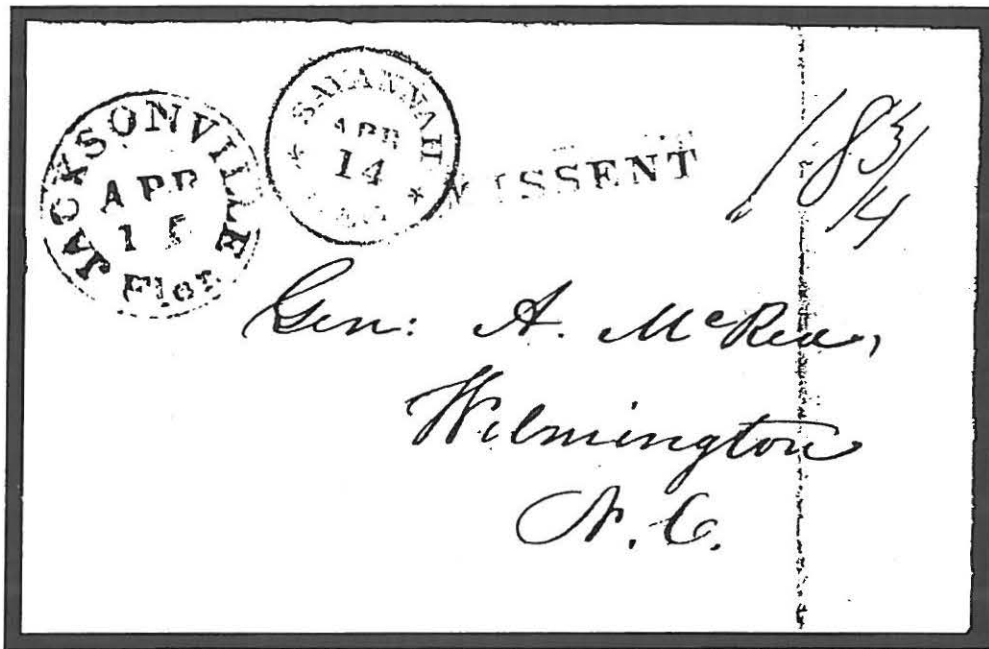 JACKSONVILLE
APR
15
Flor.
SAVANNAH
APR
14
MISSENT
18 3/4
Gen: A. McRea,
Wilmington
N. C.